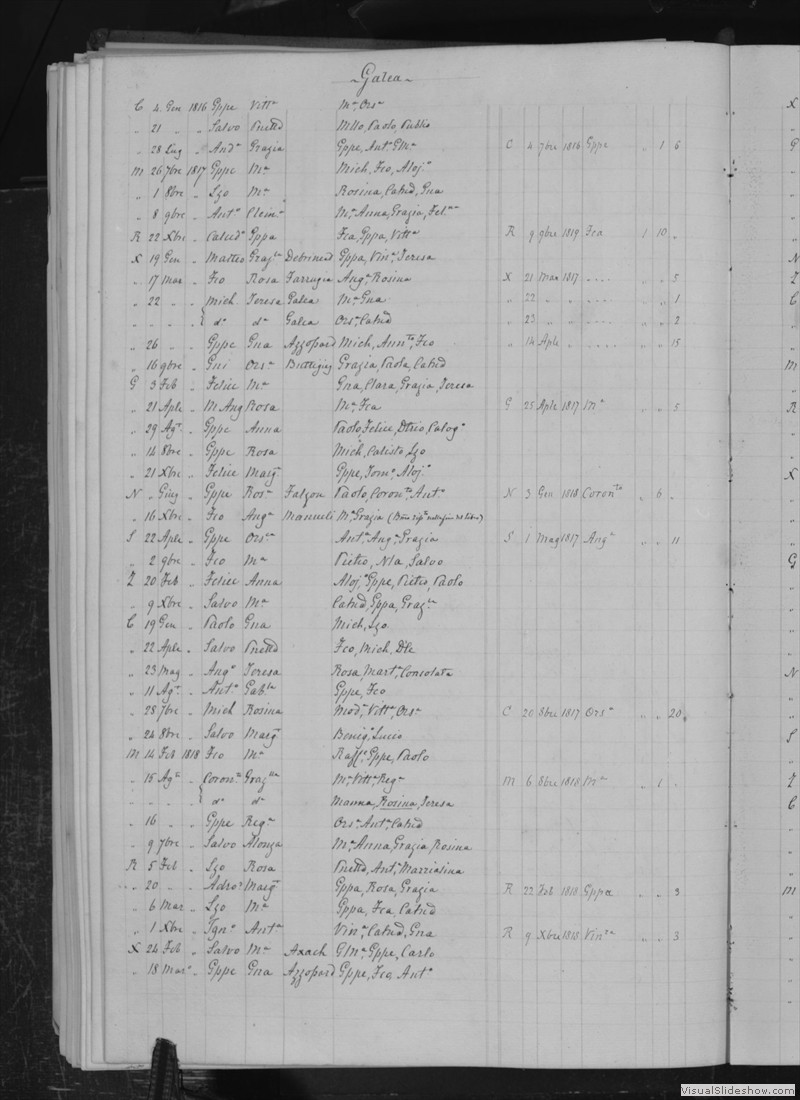 Galea
C 4 Gen 1816 Gppe Vittᵃ Mᵃ Orsᵃ
" 21 " " Salvo Prettᵈ Mllo, Paolo, Publio
" 28 Lug " Andᵃ Grazia Gppe, Antᵒ, GMᵃ C 4 7bre 1816 Gppe " 1 6
M 26 7bre 1817 Gppe Mᵃ Mich, Fco, Alojᵒ
" 1 8bre " Lzo Mᵃ Rosina, Catnᵈ, Gna
" 8 9bre " Antᵒ Clemᵃ Mᵃ Anna, Grazia,
R 22 Xbre " Gppa Fca, Gppa, Vittᵃ R 9 9bre 1819 Fca 1 10 "
X 19 Gen " Matteo Grazᵘᵃ Debrincat Gppa, Vinᵃ, Teresa
" 17 Mar " Fco Rosa Farrugia Angᵃ, Rosina X 21 Mar 1817 .... " " 5
" 22 " " Mich Teresa Galea Mᵃ Gna " 22 " " .... " " 1
" " " " dᵒ dᵃ Galea Orsᵃ, Catnᵈ " 23 " " .... " " 2
" 26 " " Gppe Gna Azzopard Mich, Annᵗᵃ, Fco " 14 Aple " .... " " 15
" 16 9bre " Gni Orsᵃ Buttigieg Grazia, Paola, Catnᵈ
G 3 Feb " Felice Mᵃ Gna, Clara, Grazia, Teresa
" 21 Aple " M Ang Rosa Mᵃ, Fca G 25 Aple 1817 Mᵃ " " 5
" 29 Agᵗᵒ " Gppe Anna Paolo, Felice, Calogᵒ
" 14 8bre " Gppe Rosa Mich, Calisto, Lzo
" 21 Xbre " Felice Margᵗ Gppe, Tomᵒ, Alojᵒ
N " Giug " Gppe Rosᵃ Falzon Paolo, Coronᵗᵃ, Antᵒ N 3 Gen 1818 Coronᵗᵃ " 6 "
" 16 Xbre " Fco Angᵃ Mamueli Mᵃ Grazia
S 22 Aple " Gppe Orsᵃ Antᵃ, Angᵃ, Grazia S 1 Mag 1817 Angᵃ " " 11
" 2 9bre " Fco Mᵃ Pietro, Nla, Salvo
Z 20 Feb " Felice Anna Alojᵒ, Gppe, Pietro, Paolo
" 9 Xbre " Salvo Mᵃ Catnᵈ, Gppa, Grazᵘᵃ
C 19 Gen " Paolo Gna Mich, Lzo
" 22 Aple " Salvo Prettᵈ Fco, Mich,
" 23 Mag " Angᵒ Teresa Rosa, Martᵃ, Consolata
" 11 Agᵗᵒ " Antᵒ Gabˡᵃ Gppe, Fco
" 28 7bre " Mich Rosina Modᵃ, Vittᵃ, Orsᵃ C 20 8bre 1817 Orsᵃ " " 20
" 24 8bre " Salvo Margᵗ Benigᵒ, Lucio
M 14 Feb 1818 Fco Mᵃ Raffᵉ, Gppe, Paolo
" 15 Agᵗᵒ " Coronᵒ Grazᵘᵃ Mᵃ, Vittᵃ, Regᵃ M 6 8bre 1818 Mᵃ " 1 "
" " " " dᵒ dᵃ Manna, Rosina, Teresa
" 16 " " Gppe Regᵃ Orsᵃ, Antᵃ, Catnᵈ
" 9 7bre " Salvo Alonza Mᵃ Anna, Grazia, Rosina
R 5 Feb " Lzo Rosa Prettᵈ, Antᵃ, Marzialina
" 20 " " Margᵗ Gppa, Rosa, Grazia R 22 Feb 1818 Gppa " " 3
" 6 Mar " Lzo Mᵃ Gppa, Fca, Catnᵈ
" 1 Xbre " Ignᵒ Antᵃ Vinᵃ, Catnᵈ, Gna R 9 Xbre 1818 Vinᵗᵃ " " 3
X 24 Feb " Salvo Mᵃ Axach GMᵃ, Gppe, Carlo
" 18 Marᵒ " Gppe Gna Azzopard Gppe, Fco, Antᵒ
VisualSlideshow.com